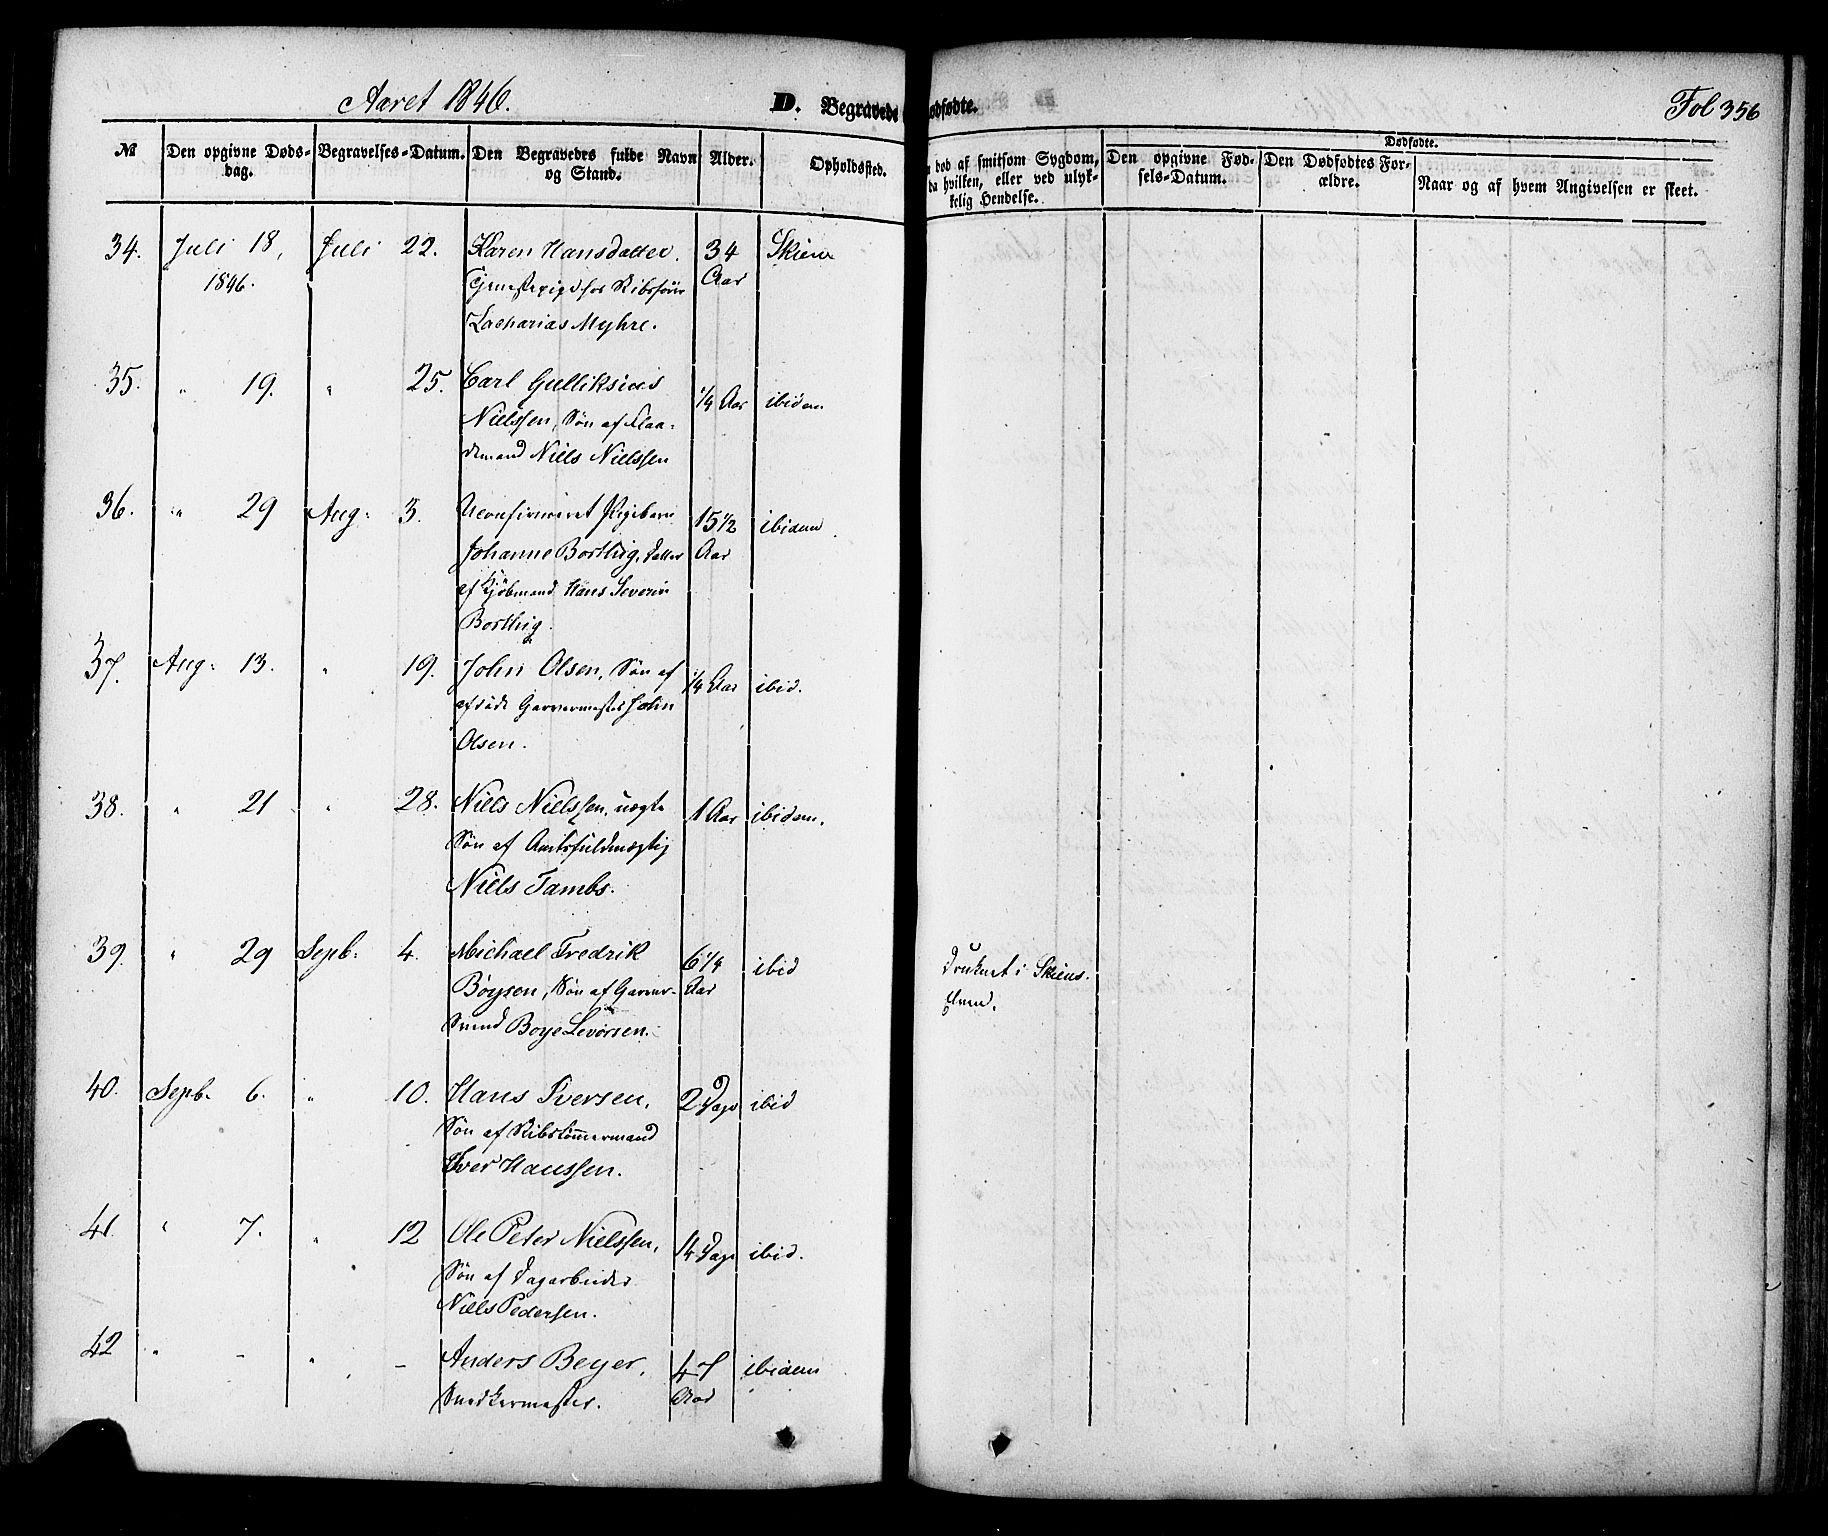 Aaret 1846.
D. Begravede
ødfødte.
Fol 356
№
Den opgivne Døds-
dag.
Begravelses-Datum.
Den Begravedes fulde Navn
og Stand.
Alder.
Opholdssted.
død af smitsom Sygdom,
da hvilken, eller ved ulyk-
kelig Hendelse.
Dødfødte.
Den opgivne Fød-
sels-Datum.
Den Dødfødtes For-
ældre.
Naar og af hvem Angivelsen er skeet.
34. Juli 18, Juli 22. Karen Hansdatter. 34 Skien
1846. Tjenestepige hos Skibsfører Aar
Zacharias Myhre.
35. " 19. " 25. Carl Gulliksius
Nielssen, Søn af Flaa- 1/4 Aar ibidem
demand Niels Nielssen
36. " 29 Aug: 3. Uconfirmeret Pigebarn 15 1/2 ibidem.
Johanne Borthig, Datter Aar
af Kjøbmand Hans Severin
Borthig.
37. Aug: 13. " 19. John Olsen, Søn af 1/4 Aar ibid.
afdøde Garvermester John
Olsen.
38. " 21 " 28. Niels Nielssen, uægte 1 Aar ibidem.
Søn af Amtsfuldmægtig
Niels Tambs.
39. " 29 Sepb: 4. Michael Fredrik 6 1/4 ibid Druknet i Skiens-
Böysen, Søn af Garver- Aar elven.
svend Boye Levorsen.
40. Sepb. 6. " 10. Hans Iversen, 2 Dage ibid
Søn af Skibstömmermand
Iver Hanssen.
41. " 7. " 12 Ole Peter Nielssen, 14 Dage ibid.
Søn af Dagarbeider
Niels Pedersen.
42 " - " - Anders Beyer, 47 ibidem
Snedkermester. Aar